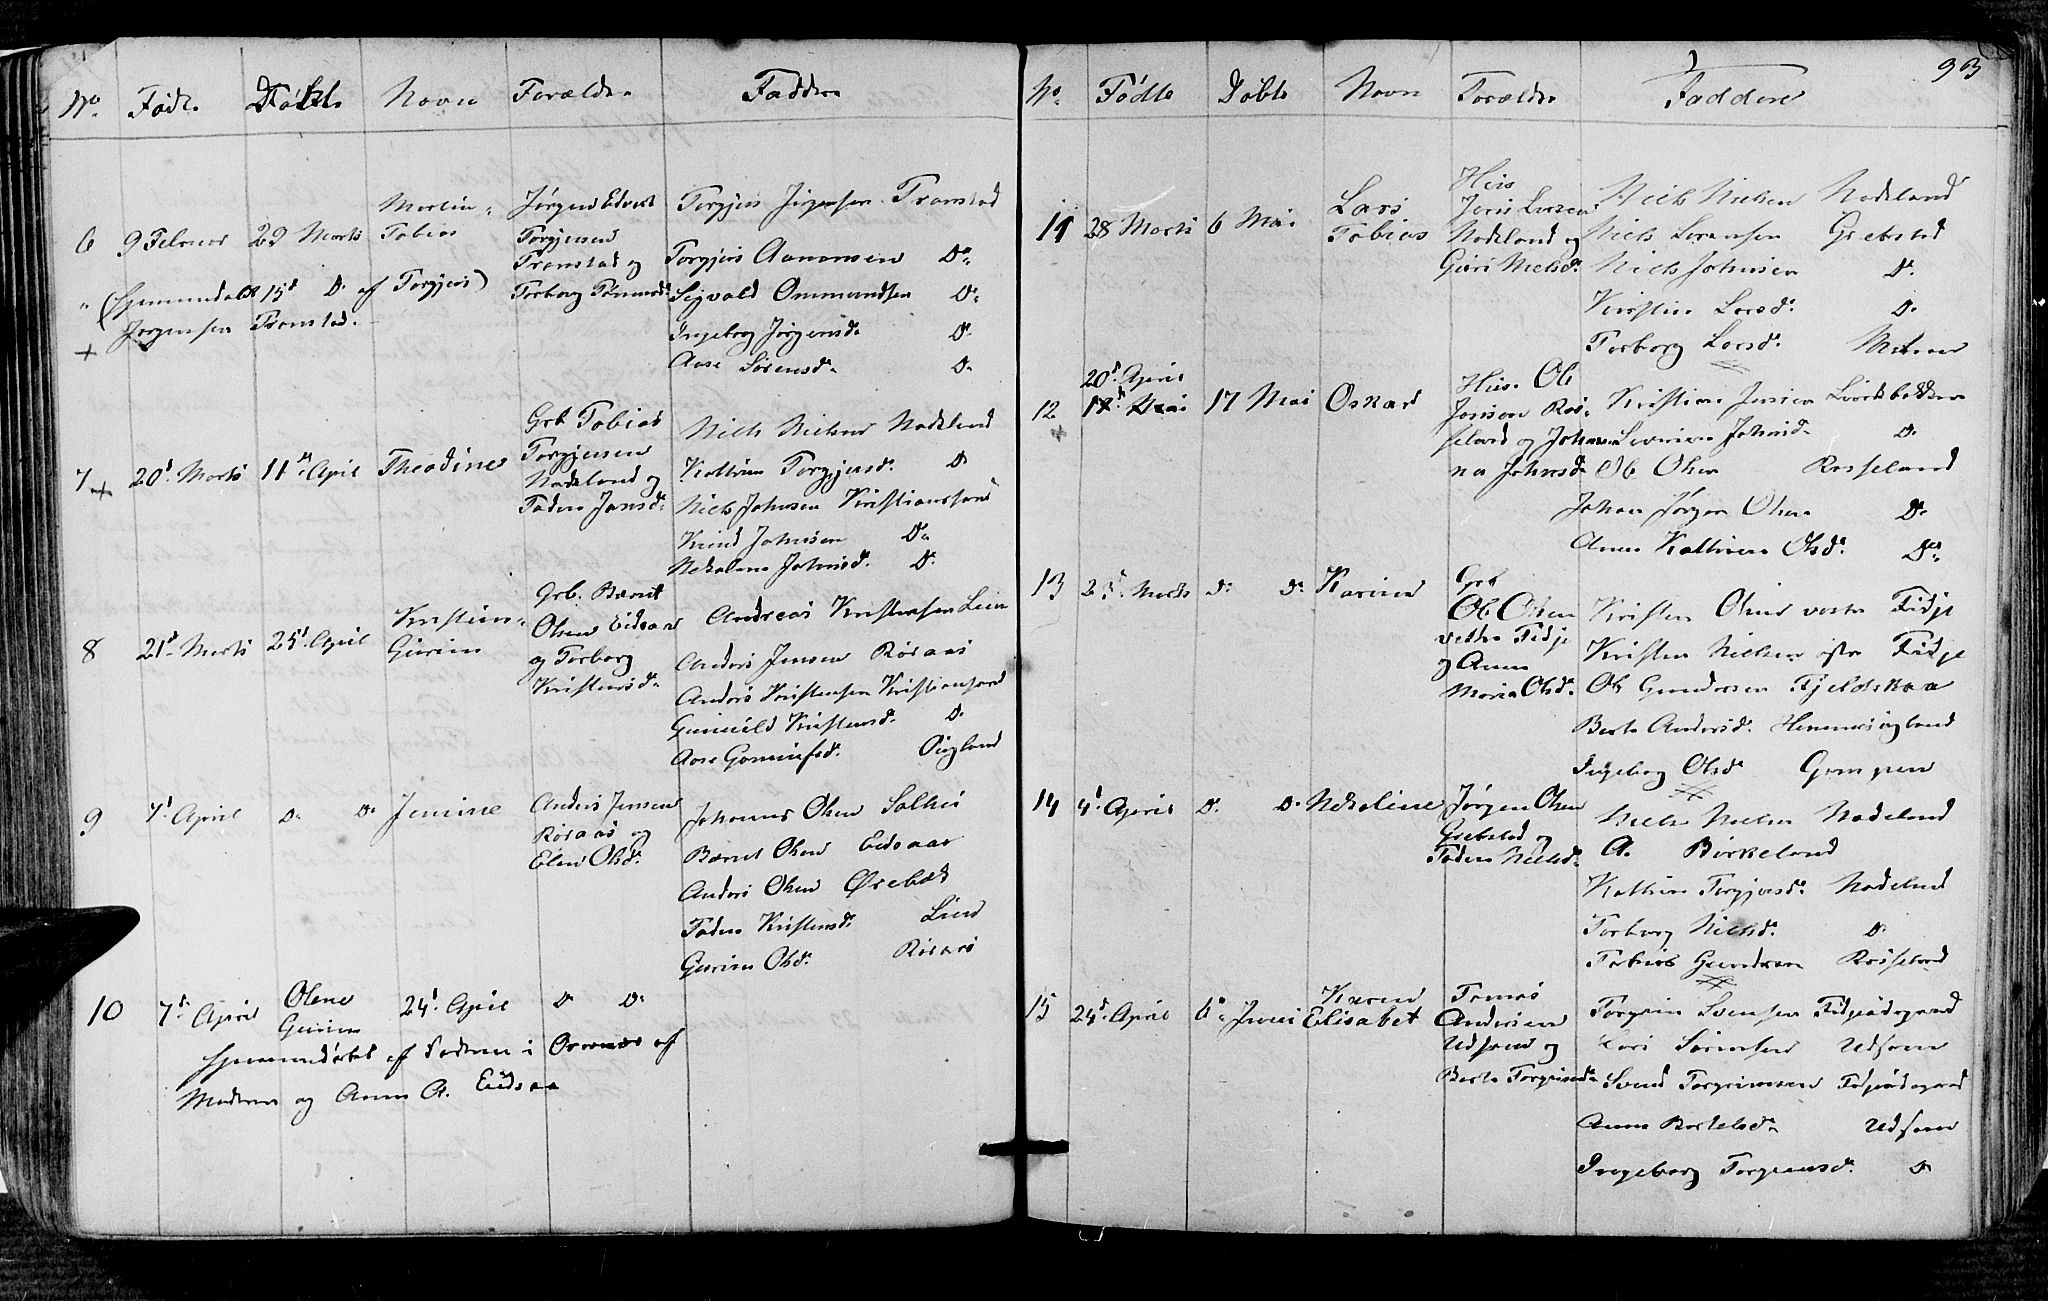 No. Fødte Døbte Navn Forældre Faddere
6 9 Februar 29 Marts
Martin
Tobias
Jørgen Edvart
Torgjusen
Transtad og
Torborg
Torgjus Jørgensen Transtad
Torgjus Aanonsen Do
Sigvald Ommundsen Do
Ingeborg Jørgensd. Do
Aase Sørensd. Do
" (hjemmedøbt 15d D. af Torgjus
Jørgensen Transtad.
+
7 + 20d Marts 11te April Theodine
Grb Tobias
Torgjusen
Nodeland og
Tadea Jansd.
Niels Nielsen Nodeland
Kathrine Torgjusd. D
Niels Johnsen Kristianssand
Knud Johnsen Do
Nikoline Johnsd. D.
8 21d Marts 25d April
Kristine
Gurine
Grb. Bærnt
Olsen Eidsaa
og Torborg
Kristensd.
Andreas Kristensen Lien
Anders Jensen Rosaas
Anders Kristensen Kristianssand
Gunvild Kristensd. D.
Aase Gunnufsd.
9 7d April D. Do Jemine
Anders Jensen
Rosaas og
Elen Olsd.
Johannes Olsen
Bærnt Olsen Eidsaa
Anders Olsen Ørebæk
Tadea Kristensd. Lien
Gurine Olsd. Rosaas
10 7d April
Oline
Gurine
24d April D. Do
hjemmedøbt af Faderen i af
Moderen og Anna A. Eidsaa
93
No. Fødte Døbte Navn Forældre Faddere
11 28 Marts 6 Mai
Lars
Tobias
Huus
Jens Larsen
Nodeland og
Guri Nielsd.
Niels Nielsen Nodeland
Niels Lorensen Grebstad
Niels Johnsen D.
Kirstine Larsd. D.
Torborg Larsd.
20d April
12 17 Mai Oskar
+
Huus. Ole
Jensen Ros-
seland og Johan
na Johnsd.
Kristian Jensen
Severine Johnsd. D.
Ole Olsen Rosseland
Johan Jørgen Olsen D.
Anne Kathrine Olsd. Do
13 25d Marts D. D. Karine
Grb
Ole Olsen
vestre Fidje
og Anne
Maria Olsd.
Kristen Olsen vestre Fidje
Kristen Nielsen østre Fidje
Ole Gundersen Fjeldskaa
Berte Andersd. Hemmesigland
Ingeborg Olsd. Gumpen
14 4d April D. D. Nikoline
Jørgen Olsen
Grebstad og
Tadea Nielsd.
Niels Nielsen Nodeland
A. Birkeland
Kathrine Torgjusd. Nodeland
Torborg Nielsd. D.
Tobias Gundersen Rosseland
15 24d April 6te Juni
Karen
Elisabet
Tomas
Andersen
Udsone og
Berte Torgrimsd.
Torgrim Svensen Fidjeødegaard
Lars Sørensen Udsone
Svend Torgrimsen Fidjeødegaard
Anne Bertelsd. Udsone
Ingeborg Torgrimsd. D.